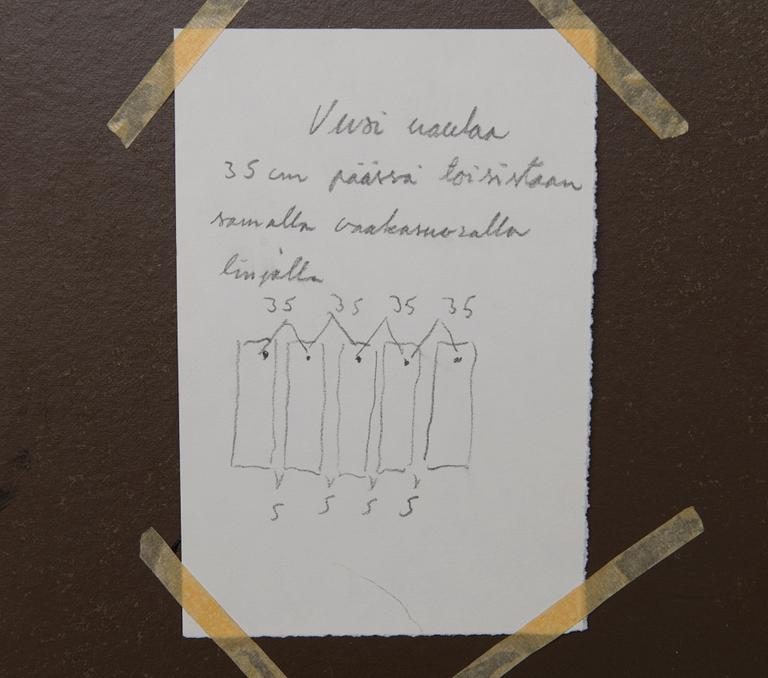 Viisi naulaa
35 cm päässä toisistaan
samalla vaakasuoralla
linjalla
35 35 35 35
5 5 5 5